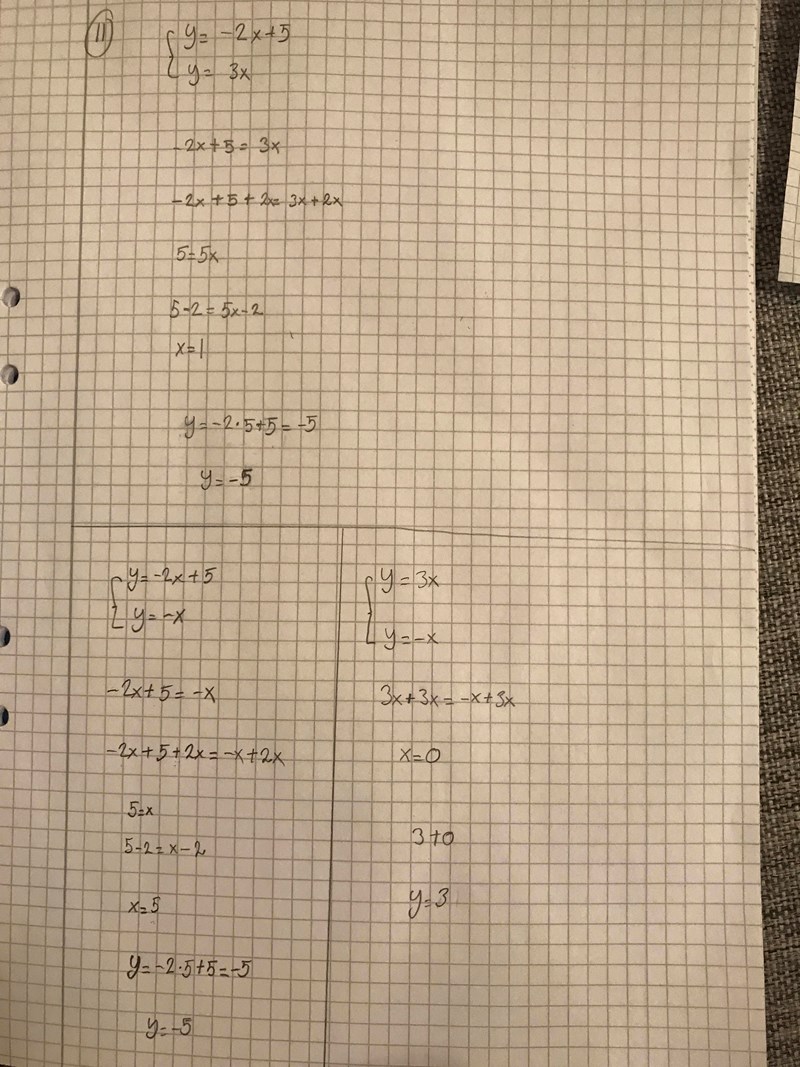 11
y = -2x+5
y = 3x
-2x+5 = 3x
-2x+5+2x = 3x+2x
5=5x
5-2 = 5x-2
x=1
y = -2·5+5 = -5
y = -5
y = -2x+5
y = -x
-2x+5 = -x
-2x+5+2x = -x+2x
5=x
5-2 = x-2
x=5
y = -2·5+5 = -5
y = -5
y = 3x
y = -x
3x+3x = -x+3x
x=0
3+0
y=3